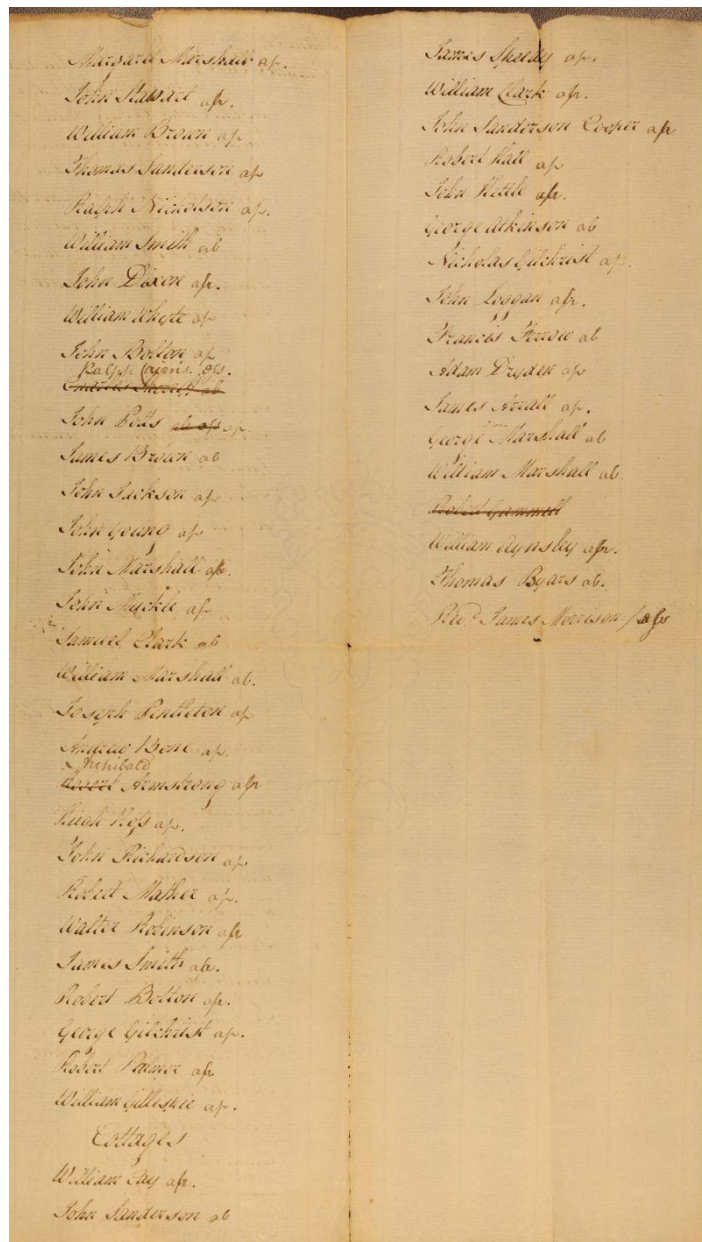 Margaret Marshall ap.
John Stewart ap.
William Brown ap
Thomas Sanderson ap
Ralph Nicholson ap.
William Smith ab
John Dixon ap.
William Whyte ap
John Bolton ap
Ralph Cairns. abs.
John Potts ab ap ap.
James Brown ab
John Jackson ap
John Young ap
John Marshall ap.
John Muckle ap
Samuel Clark ab
William Marshall ab.
Joseph Pentleton ap
Andrew Bone ap.
Archibald
Robert Armstrong ap
Hugh Ross ap.
John Richardson ap
Robert Mather ap.
Walter Robinson ap
James Smith ap.
Robert Bolton ap.
George Gilchrist ap.
Robert Palmer ap
William Gillespie ap.
Cottages
William Lay ap.
John Sanderson ab
James Speedy ap.
William Clark ap.
John Sanderson Cooper ap
Robert Hall ap
John Kettle ap.
George Atkinson ab
Nicholas Gilchrist ap.
John Logan ap.
Francis ab
Adam Dryden ap
James ap.
George Marshall ab
William Marshall ab.
Robert Gammell
William Aynsley ap.
Thomas Byars ab.
Revd. James Morrison / ap